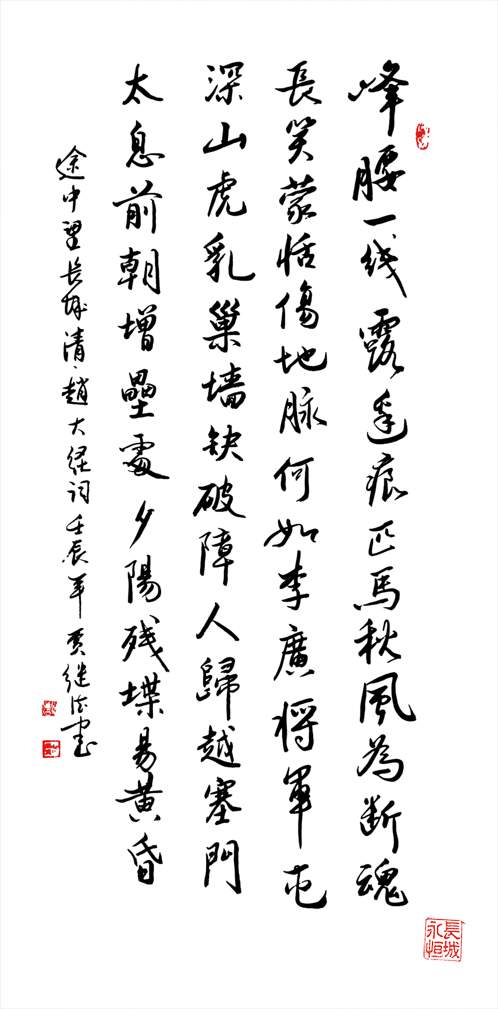 峰腰一线露邊痕匹馬秋風為断魂
長笑蒙恬傷地脉何如李廣将軍屯
深山虎乳巢墙缺破障人歸越塞門
太息前朝增壘處夕陽残堞易黄昏
途中望长城清·趙大经词壬辰年贾继书
長城永恒